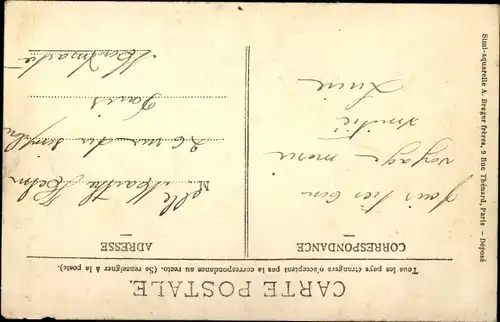 CARTE POSTALE
Tous les pays étrangers n'acceptent pas la correspondance au recto. (Se renseigner à la poste).
CORRESPONDANCE
J'ai fait très bon
voyage merci
amitié
Lucie
ADRESSE
M elle Marthe
26 rue du
Paris
Montmartre
Simi-aquarelle A. Breger frères, 9 Rue Thénard, Paris - Déposé